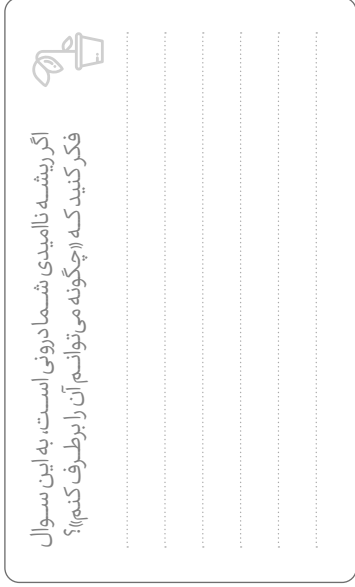 اگر ریشه ناامیدی شما درونی است، به این سوال
فکر کنید که «چگونه می‌توانم آن را برطرف کنم»؟